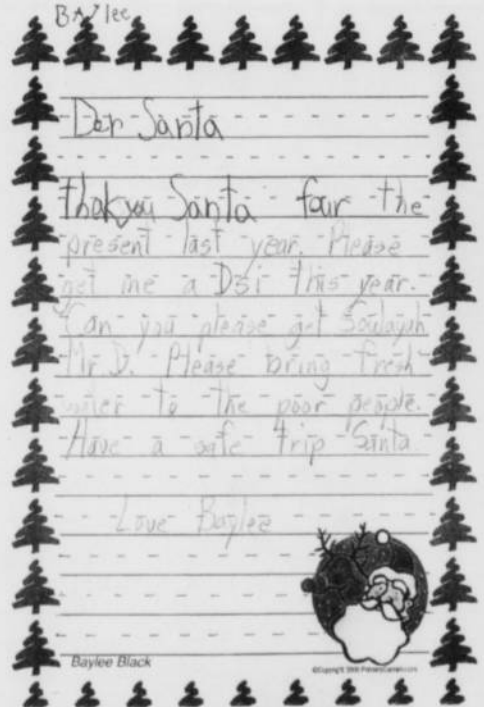 Baylee
Der Santa
thakyou Santa four the
present last year. Please
get me a Dsi this year.
Can you please get
Mr D. Please bring fresh
water to the poor people.
Have a safe trip Santa
Love Baylee
Baylee Black